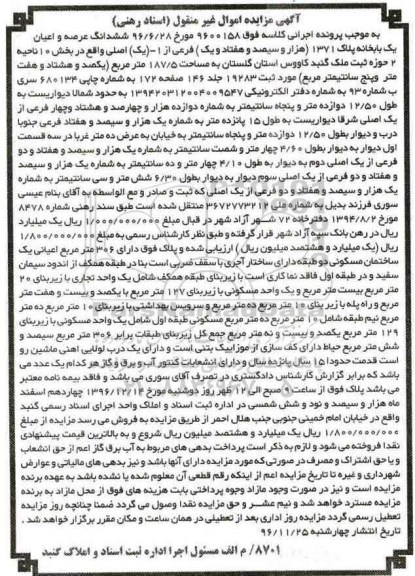 آگهی مزایده اموال غیر منقول (اسناد رهنی)
به موجب پرونده اجرائی کلاسه فوق ۹۶۰۰۱۵۸ مورخ ۹۶/۶/۲۸ ششدانگ عرصه و اعیان
یک بابخانه پلاک ۱۳۷۱ (هزار و سیصد و هفتاد و یک) فرعی از ۱-(یک) اصلی واقع در بخش ۱۰ ناحیه
۲ حوزه ثبت ملک گنبد کاووس استان گلستان به مساحت ۱۸۷/۵ متر مربع (یکصد و هشتاد و هفت
متر وپنج سانتیمتر مربع) مورد ثبت ۱۹۲۸۳ جلد ۱۴۶ صفحه ۱۷۲ به شماره چاپی ۶۸۰۱۳۴ سری
ب شماره ۹۳ به شماره دفتر الکترونیکی ۱۳۹۴۲۰۳۱۲۰۰۴۰۰۹۵۴۷ به حدود شمالا دیواریست به
طول ۱۲/۵۰ دوازده متر و پنجاه سانتیمتر به شماره دوازده هزار و چهارصد و هشتاد وچهار فرعی از
یک اصلی شرقا دیواریست به طول ۱۵ پانزده متر به شماره یک هزار و سیصد و هفتاد فرعی جنوبا
درب و دیوار بطول ۱۲/۵۰ دوازده متر و پنجاه سانتیمتر به خیابان به عرض ده متر غربا در سه قسمت
اول دیوار به دیوار بطول ۴/۶۰ چهار متر و شصت سانتیمتر به شماره یک هزار و سیصد و هفتاد و دو
فرعی از یک اصلی دوم به دیوار به طول ۴/۱۰ چهار متر و ده سانتیمتر به شماره یک هزار و سیصد
و هفتاد و دو فرعی از یک اصلی سوم دیوار به دیوار بطول ۶/۳۰ شش متر و سی سانتیمتر به شماره
یک هزار و سیصد و هفتاد و دو فرعی از یک اصلی که ثبت و صادر و مع الواسطه به آقای بنام عیسی
سوری فرزند بدیل به شماره ملی ۳۶۷۲۷۷۳۲ منتقل شده است طبق سند رهنی شماره ۸۴۷۸
مورخ ۱۳۹۴/۸/۲ دفترخانه ۷۲ شهر آزاد شهر در قبال مبلغ ۱/۰۰۰/۰۰۰/۰۰۰ ریال یک میلیارد
ریال در رهن بانک آزاد شهر قرار گرفته و طبق نظر کارشناس رسمی به مبلغ ۱/۸۰۰/۰۰۰/۰۰۰
ریال (یک میلیارد و هشتصد میلیون ریال) ارزیابی شده و پلاک فوق دارای ۳۰۶ متر مربع اعیانی یک
ساختمان مسکونی دو طبقه دارای ساختار آجری با سقف ضربی است بنا در طبقه همکف از اندود سیمان
سفید و در طبقه اول فاقد نما کاری است با زیربنای طبقه همکف شامل یک واحد تجاری با زیربنای ۲۰
متر مربع بیست متر مربع و یک واحد مسکونی با زیربنای ۱۲۷ متر مربع با یکصد و بیست و هفت متر
مربع و راه پله با زیر بنای ۱۰ متر مربع ده متر مربع و سرویس بهداشتی با زیربنای ۱۰ متر مربع ده متر
مربع نیم طبقه شامل ۱۰ متر مربع ده متر مربع مسکونی طبقه اول شامل یک واحد مسکونی با زیربنای
۱۲۹ متر مربع یکصد و بیست و نه متر مربع جمع کل زیربنای طبقات برابر ۳۰۶ متر مربع سیصد و
شش متر مربع حیاط دارای کف سازی از موزاییک بتنی است و دارای یک درب لولایی اهنی ماشین رو
است قدمت حدودا ۱۵ سال پانزده سال و دارای انشعابات کنتور آب و برق و گاز هر کدام یک عدد می
باشد که برابر گزارش کارشناس دادگستری در تصرف آقای سوری می باشد و فاقد بیمه نامه معتبر
می باشد پلاک فوق از ساعت ۹ صبح الی ۱۲ ظهر روز دوشنبه مورخ ۱۳۹۶/۱۲/۱۴ چهاردهم اسفند
ماه هزار و سیصد و نود و شش شمسی در اداره ثبت اسناد و املاک واحد اجرای اسناد رسمی گنبد
واقع در خیابان امام خمینی جنوبی جنب هلال احمر از طریق مزایده به فروش می رسد مزایده از مبلغ
۱/۸۰۰/۰۰۰/۰۰۰ ریال یک میلیارد و هشتصد میلیون ریال شروع و به بالاترین قیمت پیشنهادی
نقدا فروخته می شود و لازم به ذکر است پرداخت بدهی های مربوط به آب برق گاز اعم از حق انشعاب
و یا حق اشتراک و مصرف در صورتی که مورد مزایده دارای آنها باشد و نیز بدهی های مالیاتی و عوارض
شهرداری و غیره تا تاریخ مزایده اعم از اینکه رقم قطعی آن معلوم شده یا نشده باشد به عهده برنده
مزایده است و نیز در صورت وجود مازاد وجوه پرداختی بابت هزینه های فوق از محل مازاد به برنده
مزایده مسترد خواهد شد و نیم عشر و حق مزایده نقدا وصول می گردد ضمنا چنانچه روز مزایده
تعطیل رسمی گردد مزایده روز اداری بعد از تعطیلی در همان ساعت و مکان مقرر برگزار خواهد شد .
تاریخ انتشار چهارشنبه ۹۶/۱۱/۲۵
۸۷۰۱/ م الف مسئول اجرا اداره ثبت اسناد و املاک گنبد